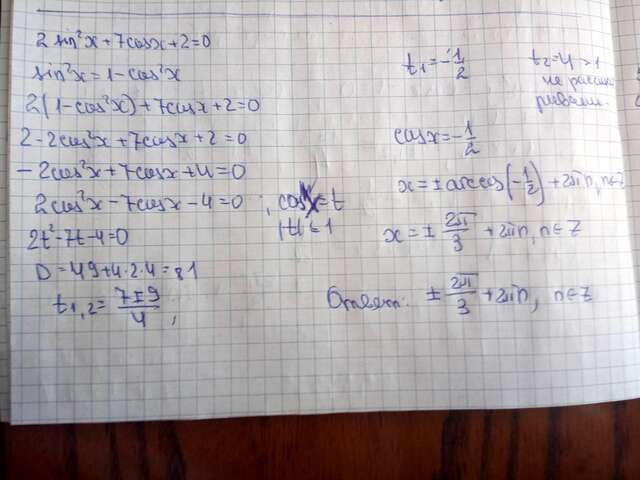 2 sin²x + 7cosx + 2 = 0
sin²x = 1 - cos²x
2(1 - cos²x) + 7cosx + 2 = 0
2 - 2cos²x + 7cosx + 2 = 0
- 2cos²x + 7cosx + 4 = 0
2cos²x - 7cosx - 4 = 0 ; cosx = t
|t| ≤ 1
2t² - 7t - 4 = 0
D = 49 + 4·2·4 = 81
t₁,₂ = (7±9)/4 ;
t₁ = -1/2
t₂ = 4 > 1
не
cosx = -1/2
x = ± arccos(-1/2) + 2πn, n∈Z
x = ± 2π/3 + 2πn, n∈Z
Ответ: ± 2π/3 + 2πn, n∈Z